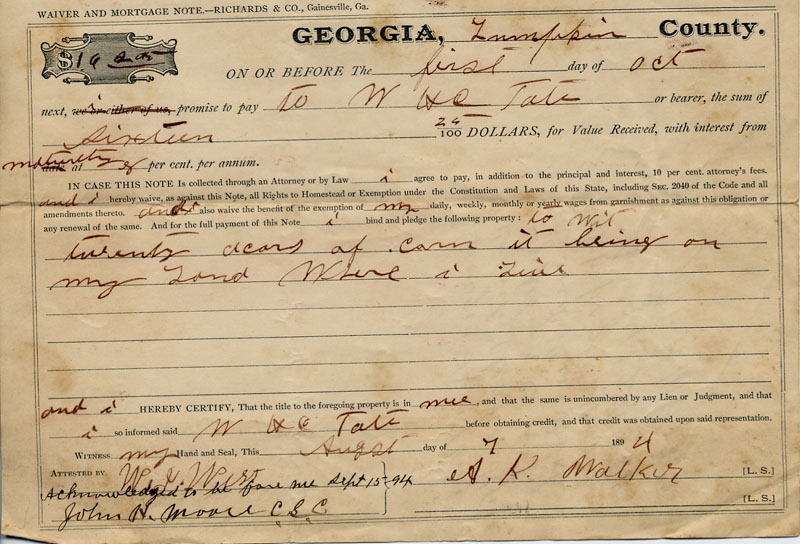 WAIVER AND MORTGAGE NOTE.—RICHARDS & CO., Gainesville, Ga.
GEORGIA, Lumpkin County.
$16 25
ON OR BEFORE The first day of Oct
next, i we or either of us, promise to pay to W H C Tate or bearer, the sum of
Sixteen 25/100 DOLLARS, for Value Received, with interest from
maturity date at 8 per cent. per annum.
IN CASE THIS NOTE Is collected through an Attorney or by Law i agree to pay, in addition to the principal and interest, 10 per cent. attorney's fees.
and i hereby waive, as against this Note, all Rights to Homestead or Exemption under the Constitution and Laws of this State, including SEC. 2040 of the Code and all
amendments thereto. and i also waive the benefit of the exemption of my daily, weekly, monthly or yearly wages from garnishment as against this obligation or
any renewal of the same. And for the full payment of this Note i bind and pledge the following property: to wit
twenty acars of corn it being on
my Land Where i Live
and i HEREBY CERTIFY, That the title to the foregoing property is in mee, and that the same is unincumbered by any Lien or Judgment, and that
i so informed said W H C Tate before obtaining credit, and that credit was obtained upon said representation.
WITNESS my Hand and Seal, This Augst day of 7 1894
ATTESTED BY W. J. West A. K. Walker [L. S.]
Acknowledged to be fore me Sept 15-94
John H. Moore C.S.C [L. S.]